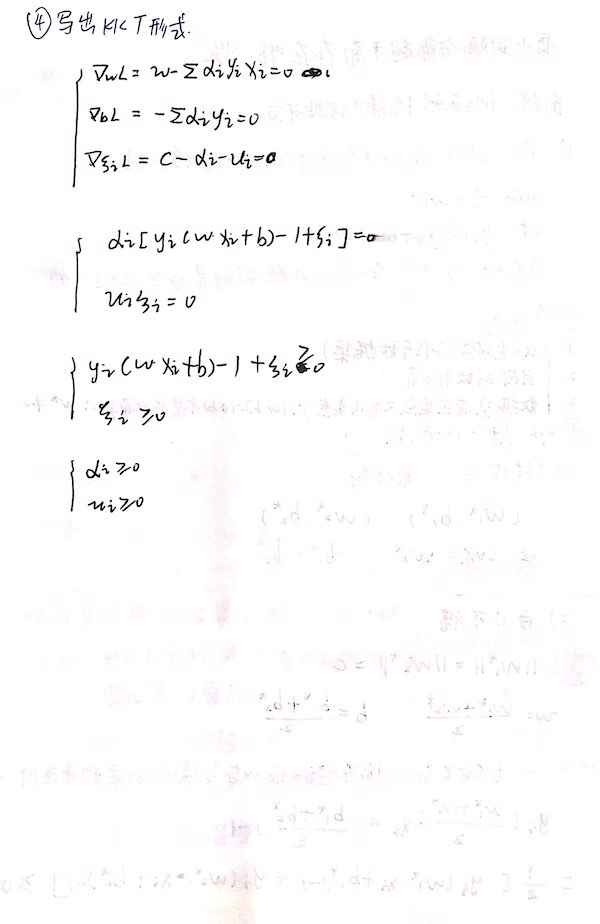 ④写出KKT形式.
∇wL = w - Σαiyixi = 0
∇bL = -Σαiyi = 0
∇ξiL = C - αi - ui = 0
αi[yi(w xi + b) - 1 + ξi] = 0
uiξi = 0
yi(w xi + b) - 1 + ξi ≥ 0
ξi ≥ 0
αi ≥ 0
ui ≥ 0